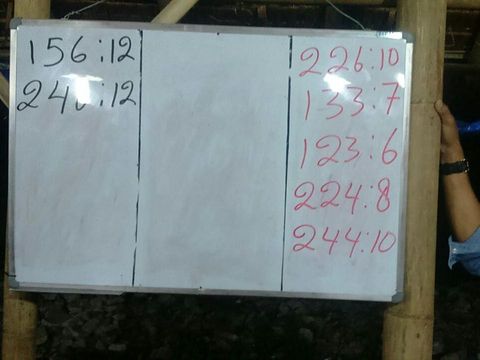 156:12
240:12
226:10
133:7
123:6
224:8
244:10